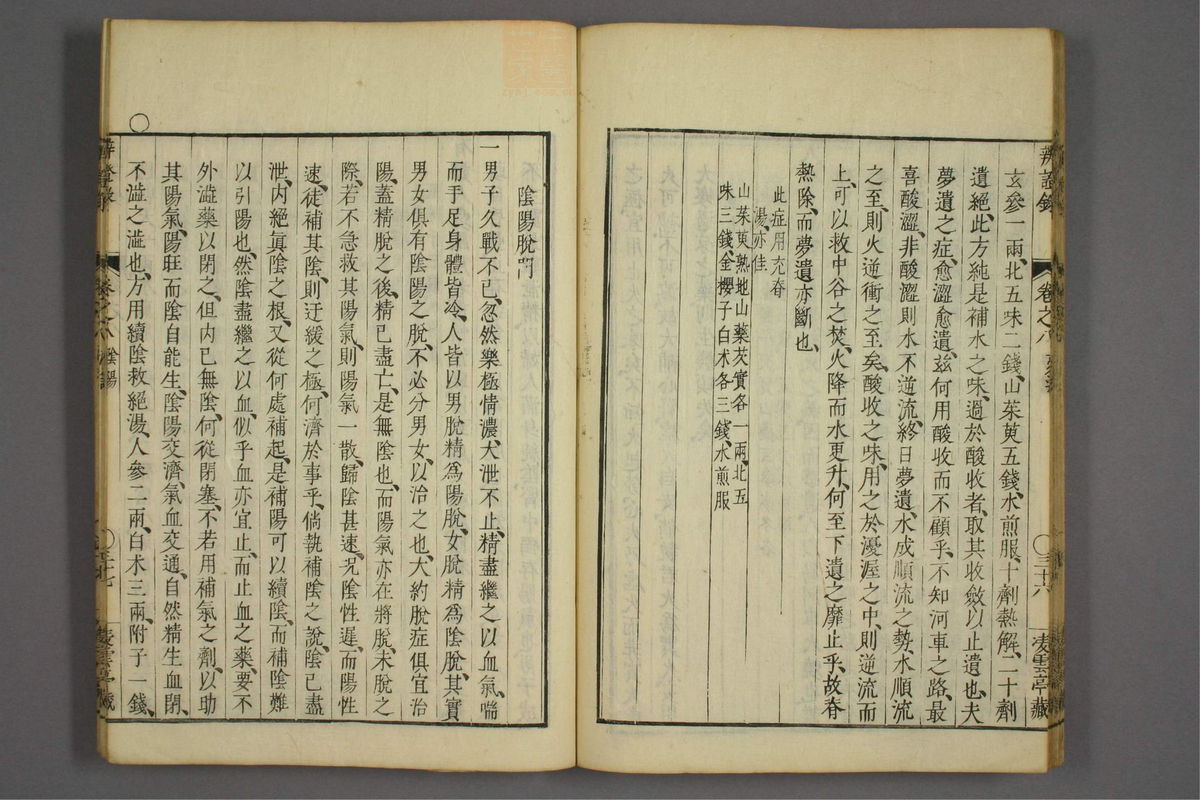 辨證錄 卷之八 三十六 凌雲亭藏
玄參一兩、北五味二錢、山茱萸五錢、水煎服、十劑熱解、二十劑
遺絕、此方純是補水之味、過於酸收者、取其收斂以止遺也、夫
夢遺之症、愈澀愈遺、茲何用酸收而不顧乎、不知河車之路、最
喜酸澀、非酸澀則水不逆流、終日夢遺、水成順流之勢、水順流
之至、則火逆衝之至矣、酸收之味、用之於優渥之中、則逆流而
上、可以救中谷之焚、火降而水更升、何至下遺之靡止乎、故脊
熱除、而夢遺亦斷也、
此症用充脊
湯亦佳
山茱萸熟地山藥芡實各一兩、北五
味三錢、金櫻子白朮各三錢、水煎服
陰陽脫門
一男子久戰不已、忽然樂極情濃、大泄不止、精盡繼之以血、氣喘
而手足身體皆冷、人皆以男脫精為陽脫、女脫精為陰脫、其實
男女俱有陰陽之脫、不必分男女以治之也、大約脫症俱宜治
陽、蓋精脫之後、精已盡亡、是無陰也、而陽氣亦在將脫未脫之
際、若不急救其陽氣、則陽氣一散、歸陰甚速、況陰性遲、而陽性
速、徒補其陰、則迂緩之極、何濟於事乎、倘執補陰之說、陰已盡
泄、內絕眞陰之根、又從何處補起、是補陽可以續陰、而補陰難
以引陽也、然陰盡繼之以血、似乎血亦宜止、而止血之藥、要不
外澁藥以閉之、但內已無陰、何從閉塞、不若用補氣之劑、以助
其陽氣、陽旺而陰自能生、陰陽交濟、氣血交通、自然精生血閉、
不澁之澁也、方用續陰救絕湯、人參二兩、白朮三兩、附子一錢、
卷之八 陰陽 三十七